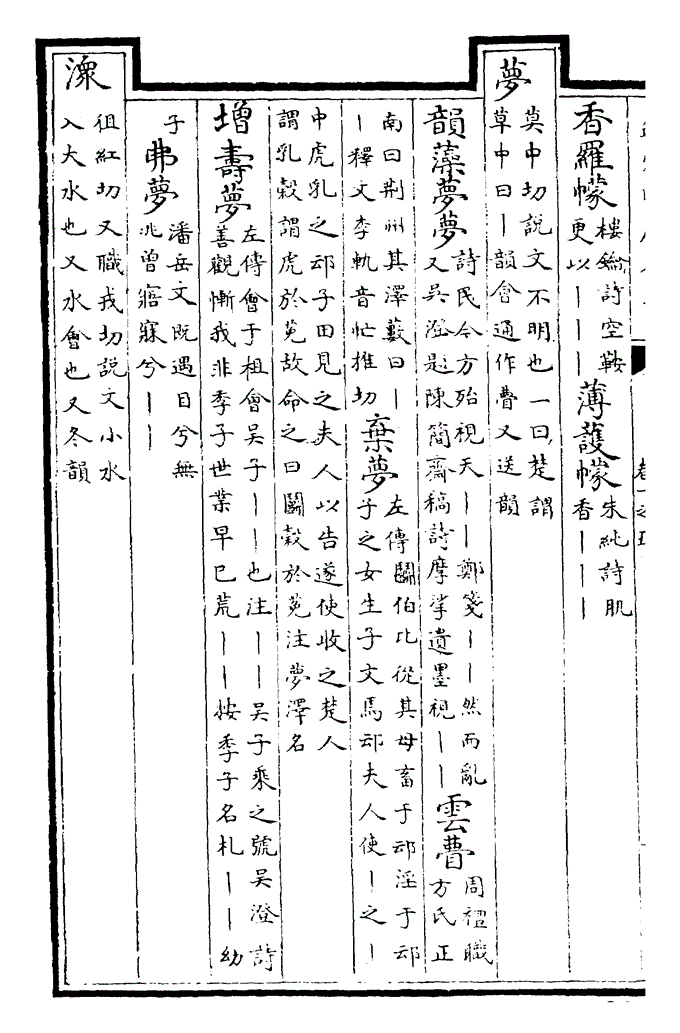 香羅幪 樓鑰詩空鞍
更以｜｜｜
薄䕶幪 朱純詩肌
香｜｜｜
夢 莫中切說文不明也一曰楚謂
草中曰｜韻會通作瞢又送韻
韻藻夢夢 詩民今方殆視天｜｜鄭箋｜｜然而亂
又吳澄題陳簡齋稿詩摩挲遺墨視｜｜
雲瞢 周禮職
方氏正
南曰荆州其澤藪曰｜
｜釋文李軌音忙推切
棄夢 左傳鬬伯比從其母畜于䢵淫于䢵
子之女生子文焉䢵夫人使｜之｜
中虎乳之䢵子田見之夫人以告遂使收之楚人
謂乳穀謂虎於菟故命之曰鬬穀於菟注夢澤名
增壽夢 左傳會于柤會吳子｜｜也注｜｜吳子乘之號吳澄詩
善觀慚我非季子世業早已荒｜｜按季子名札｜｜幼
子
弗夢 潘岳文既遇目兮無
兆曾寤寐兮｜｜
潨 徂紅切又職戎切說文小水
入大水也又水會也又冬韻